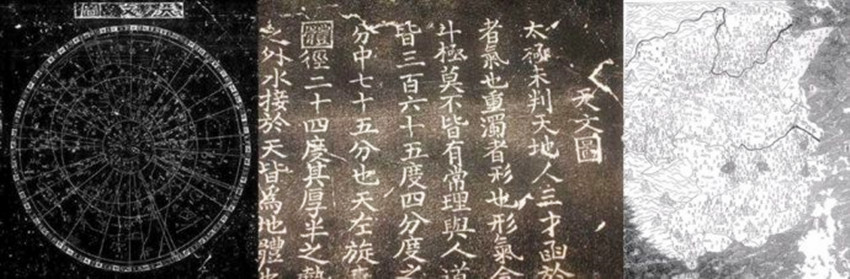 天文圖
天文圖
太極未判天地人三才函於
者氣也重濁者形也形氣合
斗極莫不皆有常理與人道
皆三百六十五度四分度之
分中七十五分也天左旋
體徑二十四度其厚半之勢
之外水接於天皆為地體